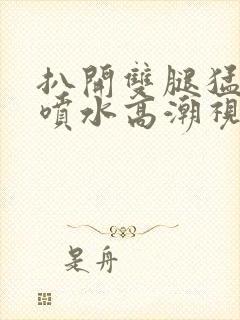 扒開雙腿猛
噴水高潮視
是舟